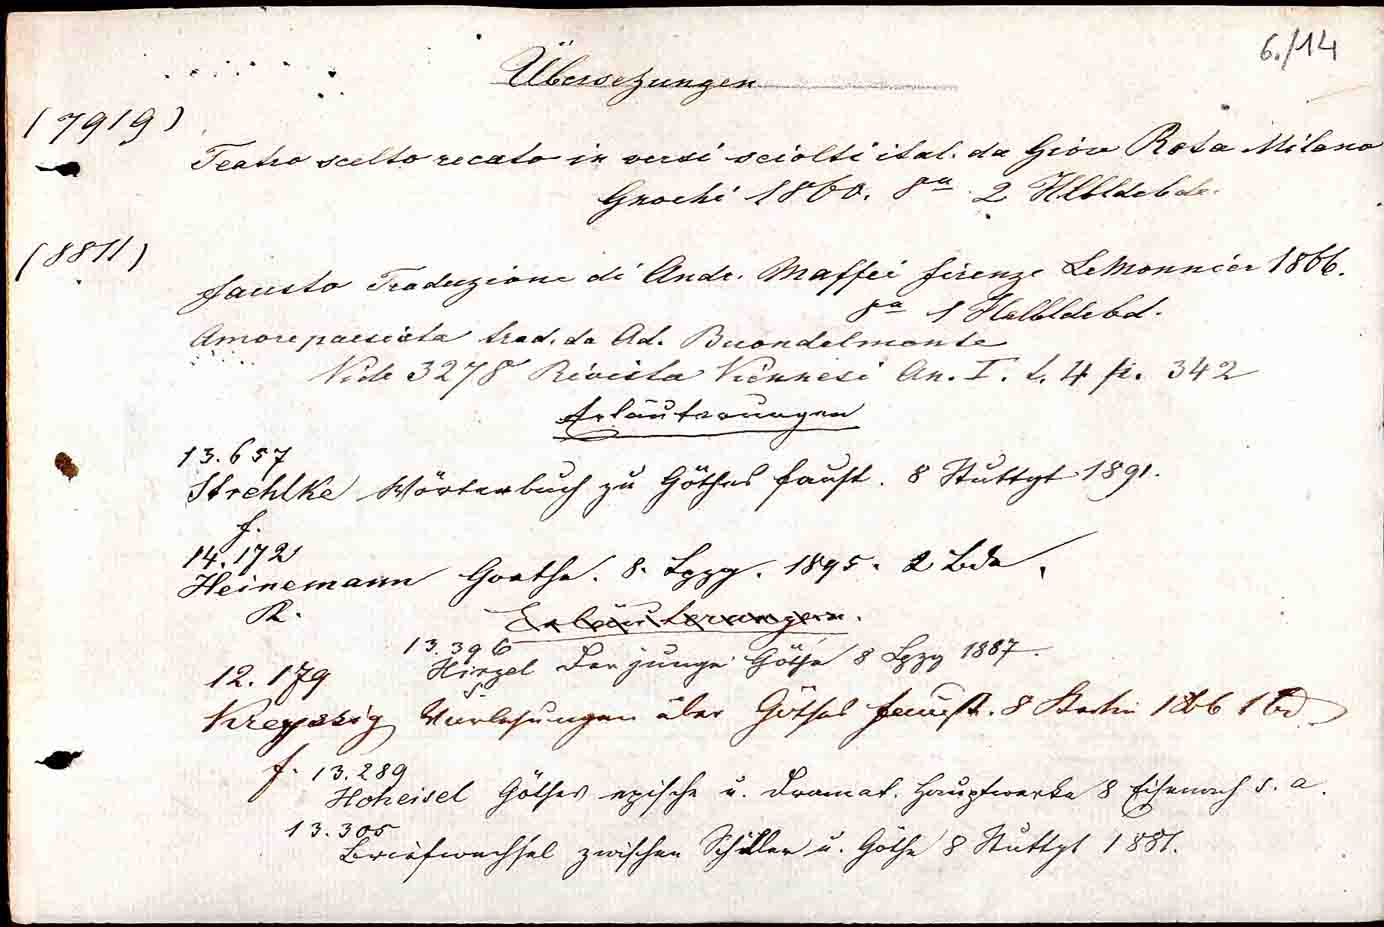 6./14
Übersetzungen
(7919)
Teatro scelto recato in versi sciolti ital. da Giov Rota Milano
Gnochi 1860. 8a 2 Hlbldrbde.
(8811)
Fausto Traduzione di Andr. Maffei Firenze LeMonnier 1866.
8a 1 Halbldrbd.
trad. da Ad. Buondelmonte
Vide 3278 Rivista Viennesi An. I. t. 4 p. 342
Erläuterungen
13.657
Strehlke Wörterbuch zu Göthes Faust. 8 Stuttgt 1891.
f.
14.172
Heinemann Goethe. 8. Lpzg. 1895. 2 Bde.
R.
Erläuterungen.
13.396
Hirzel Der junge Göthe 8 Lpzg 1887.
s.
12.179
Kreyssig Vorlesungen über Göthes Faust. 8 Berlin 1866 1 Bd.
f. 13.289
Hoheisel Göthes epische u. dramat. Hauptwerke 8 Eisenach s. a.
13.305
Briefwechsel zwischen Schiller u. Göthe 8 Stuttgt 1881.